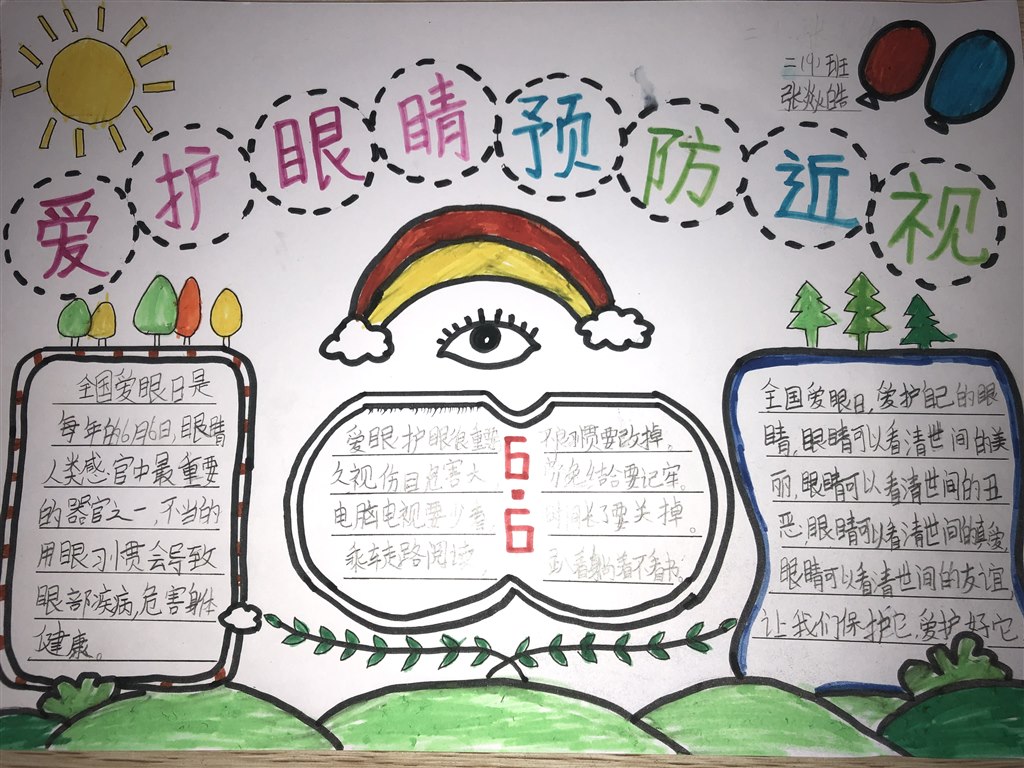 二(9)班
张焱皓
爱护眼睛预防近视
全国爱眼日是
每年的6月6日,眼睛
人类感官中最重要
的器官之一,不当的
用眼习惯会导致
眼部疾病,危害身体
健康。
爱眼护眼很重要
不良习惯要改掉。
久视伤目危害大
劳逸结合要记牢。
电脑电视要少看
时间长了要关掉。
乘车走路阅读,
趴着躺着不看书。
6.6
全国爱眼日,爱护自己的眼
睛,眼睛可以看清世间的美
丽,眼睛可以看清世间的丑
恶,眼睛可以看清世间的真爱,
眼睛可以看清世间的友谊
让我们保护它,爱护好它